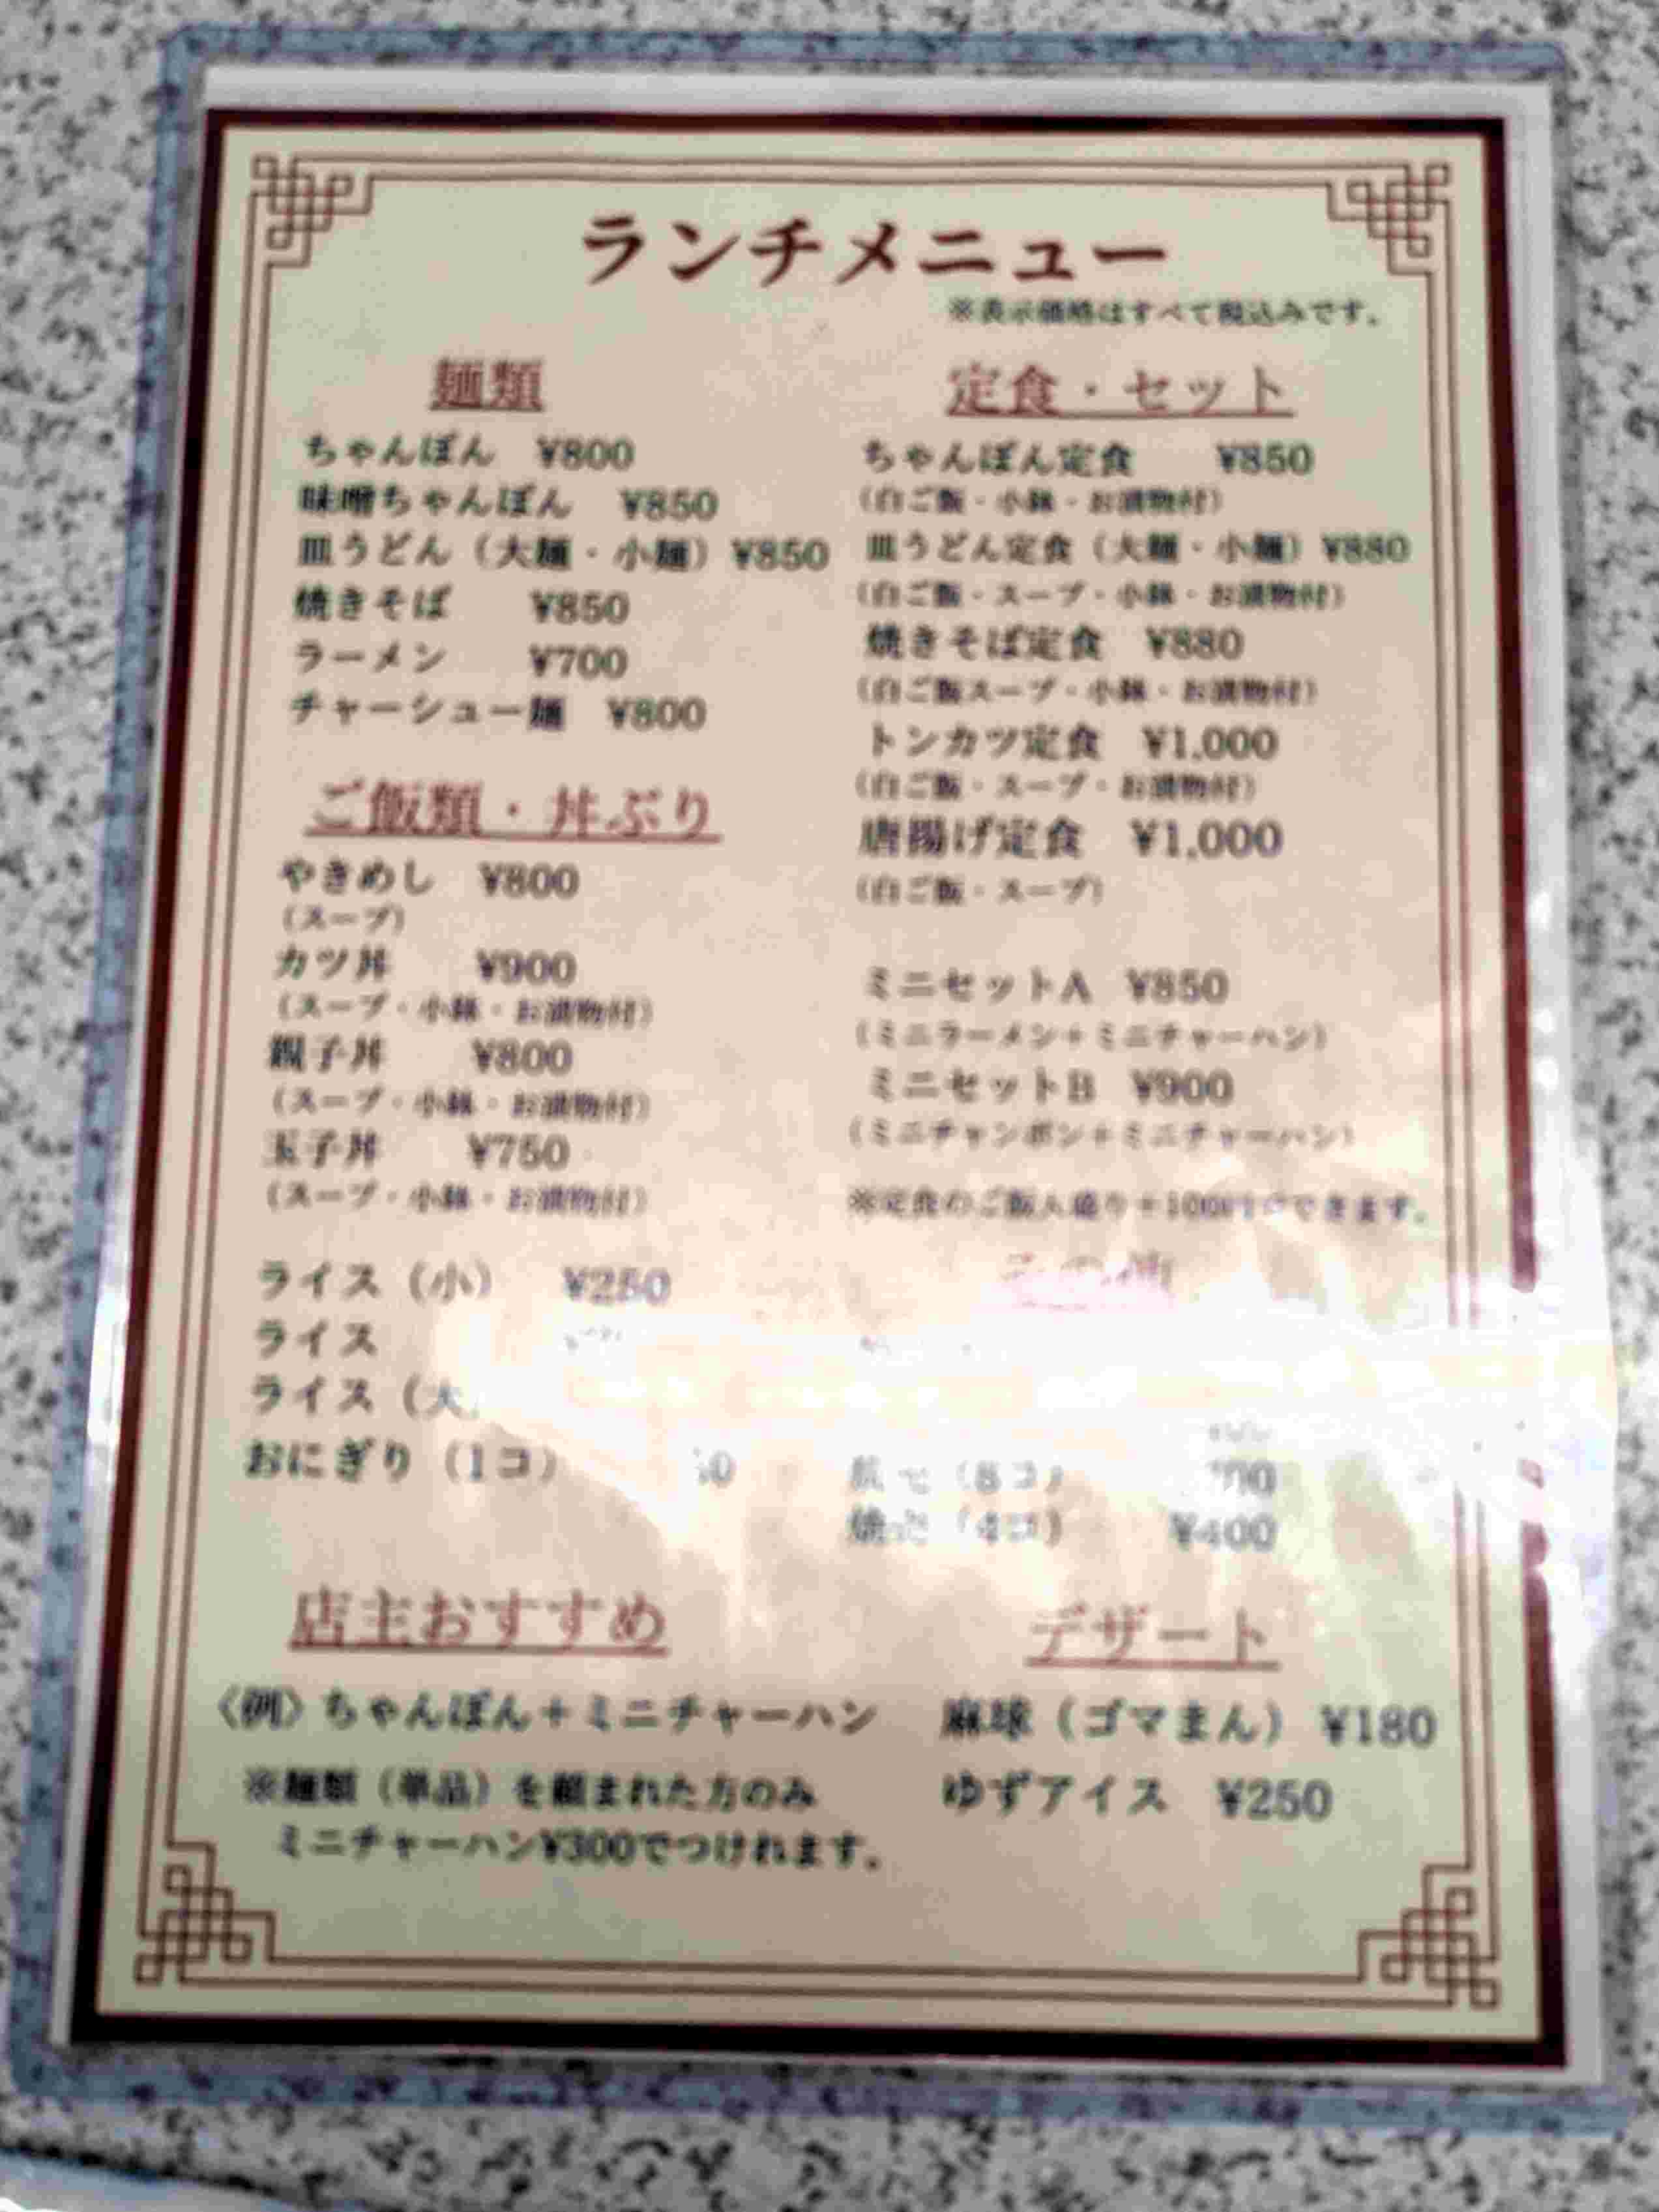 ランチメニュー
※表示価格はすべて税込みです。
麺類
ちゃんぽん ¥800
味噌ちゃんぽん ¥850
皿うどん（大麺・小麺）¥850
焼きそば ¥850
ラーメン ¥700
チャーシュー麺 ¥800
ご飯類・丼ぶり
やきめし ¥800
（スープ）
カツ丼 ¥900
（スープ・小鉢・お漬物付）
親子丼 ¥800
（スープ・小鉢・お漬物付）
玉子丼 ¥750
（スープ・小鉢・お漬物付）
ライス（小） ¥250
ライス
ライス（大
おにぎり（1コ）
店主おすすめ
〈例〉ちゃんぽん＋ミニチャーハン
※麺類（単品）を頼まれた方のみ
ミニチャーハン¥300でつけれます。
定食・セット
ちゃんぽん定食 ¥850
（白ご飯・小鉢・お漬物付）
皿うどん定食（大麺・小麺）¥880
（白ご飯・スープ・小鉢・お漬物付）
焼きそば定食 ¥880
（白ご飯スープ・小鉢・お漬物付）
トンカツ定食 ¥1,000
（白ご飯・スープ・お漬物付）
唐揚げ定食 ¥1,000
（白ご飯・スープ）
ミニセットA ¥850
（ミニラーメン＋ミニチャーハン）
ミニセットB ¥900
（ミニチャンポン＋ミニチャーハン）
※定食のご飯大盛り＋100円でできます。
その他
（8コ）
（4コ） ¥400
デザート
麻球（ゴマまん）¥180
ゆずアイス ¥250